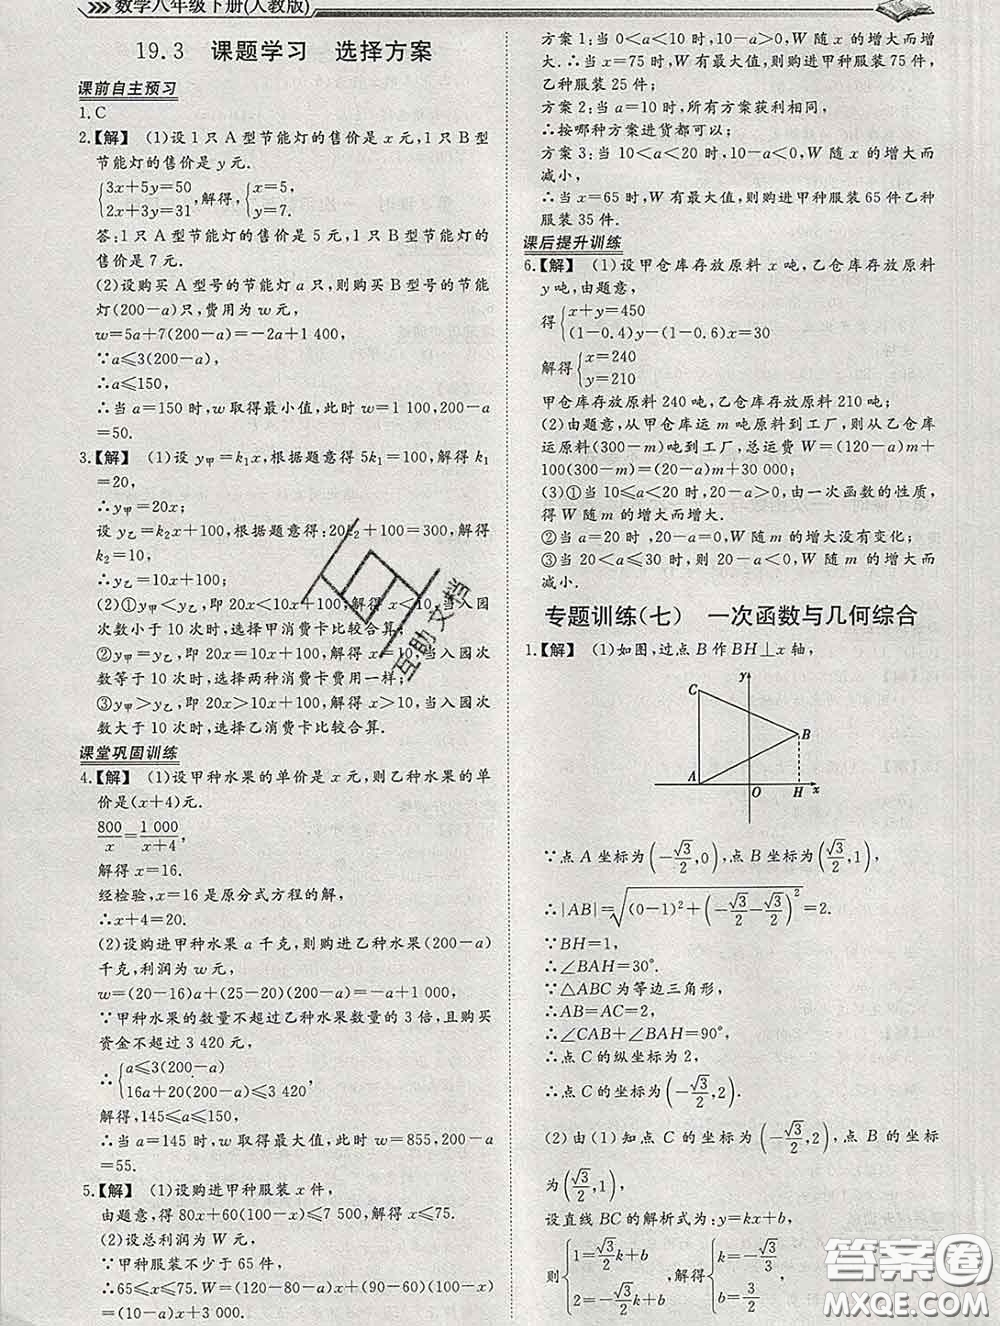 数学八年级下册(人教版)
19.3 课题学习 选择方案
课前自主预习
1.C
2.【解】 (1)设 1 只 A 型节能灯的售价是 x 元,1 只 B 型
节能灯的售价是 y 元.
{3x+5y=50 2x+3y=31 ,解得, {x=5, y=7.
答:1 只 A 型节能灯的售价是 5 元,1 只 B 型节能灯的售
价是 7 元.
(2)设购买 A 型号的节能灯 a 只,则购买 B 型号的节能
灯(200-a)只,费用为 w 元,
w=5a+7(200-a)=-2a+1 400,
∵a≤3(200-a)
∴a≤150,
∴当 a=150 时,w 取得最小值,此时 w=1 100,200-a
=50.
3.【解】 (1)设 y甲=k₁x,根据题意得 5k₁=100,解得 k₁
=20,
∴y甲=20x;
设 y乙=k₂x+100,根据题意得:20k₂+100=300,解得
k₂=10,
∴y乙=10x+100;
(2)①y甲<y乙,即 20x<10x+100,解得 x<10,当入园
次数小于 10 次时,选择甲消费卡比较合算;
②y甲=y乙,即 20x=10x+100,解得 x=10,当入园次
数等于 10 次时,选择两种消费卡费用一样;
③y甲>y乙,即 20x>10x+100,解得 x>10,当入园次
数大于 10 次时,选择乙消费卡比较合算.
课堂巩固训练
4.【解】 (1)设甲种水果的单价是 x 元,则乙种水果的单
价是(x+4)元.
800/x=1 000/(x+4),
解得 x=16.
经检验,x=16 是原分式方程的解,
∴x+4=20.
(2)设购进甲种水果 a 千克,则购进乙种水果(200-a)
千克,利润为 w 元,
w=(20-16)a+(25-20)(200-a)=-a+1 000,
∵甲种水果的数量不超过乙种水果数量的 3 倍,且购买
资金不超过 3 420 元,
∴{a≤3(200-a) 16a+20(200-a)≤3 420,
解得,145≤a≤150,
∴当 a=145 时,w 取得最大值,此时 w=855,200-a
=55.
5.【解】 (1)设购进甲种服装 x 件,
由题意,得 80x+60(100-x)≤7 500,解得 x≤75.
(2)设总利润为 W 元,
甲种服装不少于 65 件,
∴65≤x≤75.W=(120-80-a)x+(90-60)(100-x)
=(10-a)x+3 000.
方案 1;当 0<a<10 时,10-a>0,W 随 x 的增大而增大,
∴当 x=75 时,W 有最大值,则购进甲种服装 75 件,
乙种服装 25 件;
方案 2;当 a=10 时,所有方案获利相同,
∴按哪种方案进货都可以;
方案 3;当 10<a<20 时,10-a<0,W 随 x 的增大而
减小,
∴当 x=65 时,W 有最大值,则购进甲种服装 65 件乙种
服装 35 件.
课后提升训练
6.【解】 (1)设甲仓库存放原料 x 吨,乙仓库存放原料
y 吨,由题意,
得{x+y=450 (1-0.4)y-(1-0.6)x=30
解得{x=240 y=210
甲仓库存放原料 240 吨,乙仓库存放原料 210 吨;
(2)由题意,从甲仓库运 m 吨原料到工厂,则从乙仓库
运原料(300-m)吨到工厂,总运费 W=(120-a)m+
100(300-m)=(20-a)m+30 000;
(3)①当 10≤a<20 时,20-a>0,由一次函数的性质,
得 W 随 m 的增大而增大.
②当 a=20 时,20-a=0,W 随 m 的增大没有变化;
③当 20<a≤30 时,则 20-a<0,W 随 m 的增大而
减小.
专题训练(七) 一次函数与几何综合
1.【解】 (1)如图,过点 B 作 BH⊥x 轴,
y
C
B
A
O
H
x
∵点 A 坐标为(-√3/2,0),点 B 坐标为(√3/2,1),
∴|AB|=√((0-1)²+(-√3/2-√3/2)²)=2.
∵BH=1,
∴∠BAH=30°.
∵△ABC 为等边三角形,
∴AB=AC=2,
∴∠CAB+∠BAH=90°,
∴点 C 的纵坐标为 2,
∴点 C 的坐标为(-√3/2,2).
(2)由(1)知点 C 的坐标为(-√3/2,2),点 B 的坐标
为(√3/2,1),
设直线 BC 的解析式为:y=kx+b,
则{1=√3/2k+b 2=-√3/2k+b ,解得{k=-√3/3 b=3/2
互助文档
答案卷
MXQE.COM